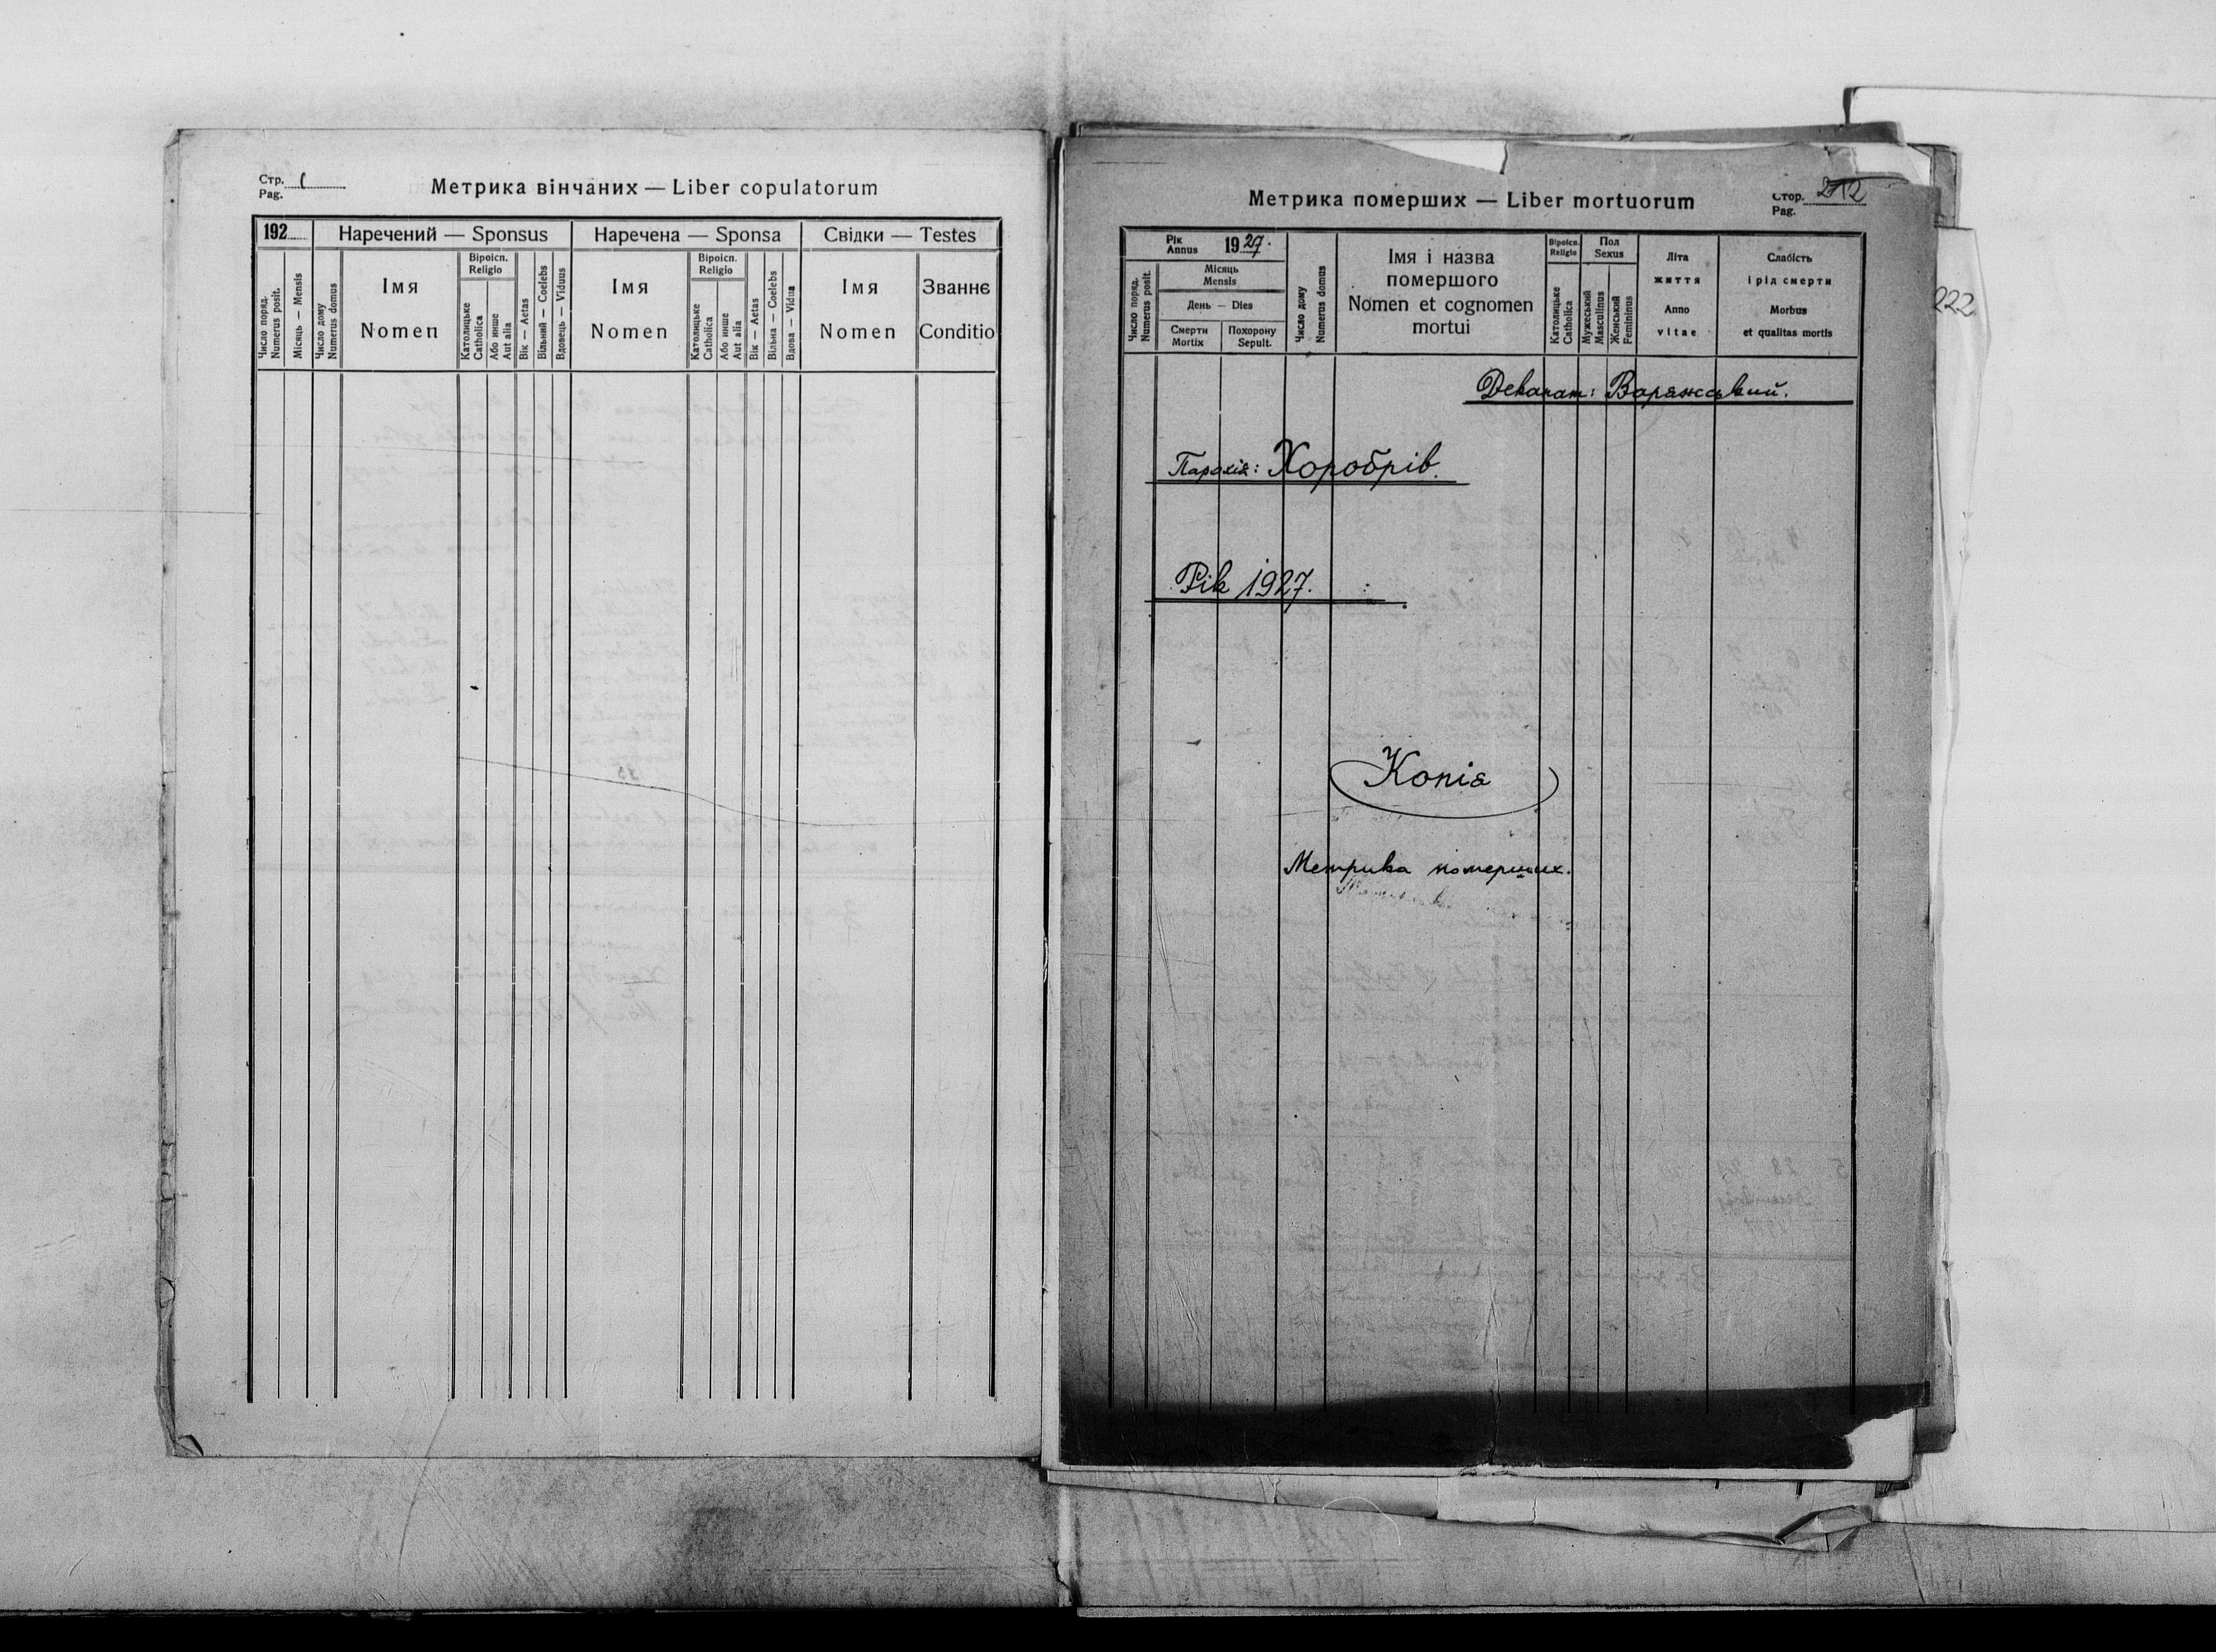 Стр.
Pag.
Метрика вінчаних — Liber copulatorum
192
Наречений — Sponsus
Наречена — Sponsa
Свідки — Testes
Число поряд.
Numerus posit.
Місяць — Mensis
Число дому
Numerus domus
Імя
Nomen
Віроісп.
Religio
Католицьке
Catholica
Або инше
Aut alia
Вік — Aetas
Вільний — Coelebs
Вдовець — Viduus
Імя
Nomen
Віроісп.
Religio
Католицьке
Catholica
Або инше
Aut alia
Вік — Aetas
Вільна — Coelebs
Вдова — Vidua
Імя
Nomen
Званнє
Conditio
Метрика померших — Liber mortuorum
Стор. 212
Pag.
Рік
Annus
1927.
Число поряд.
Numerus posit.
Місяць
Mensis
День — Dies
Смерти
Mortix
Похорону
Sepult.
Число дому
Numerus domus
Імя і назва
помершого
Nomen et cognomen
mortui
Віроісп.
Religio
Католицьке
Catholica
Пол
Sexus
Мужеський
Masculinus
Женський
Femininus
Літа
життя
Anno
vitae
Слабість
і рід смерти
Morbus
et qualitas mortis
222
Деканат: Варяжський.
Парохія: Хоробрів.
Рік 1927.
Копія
Метрика померших.